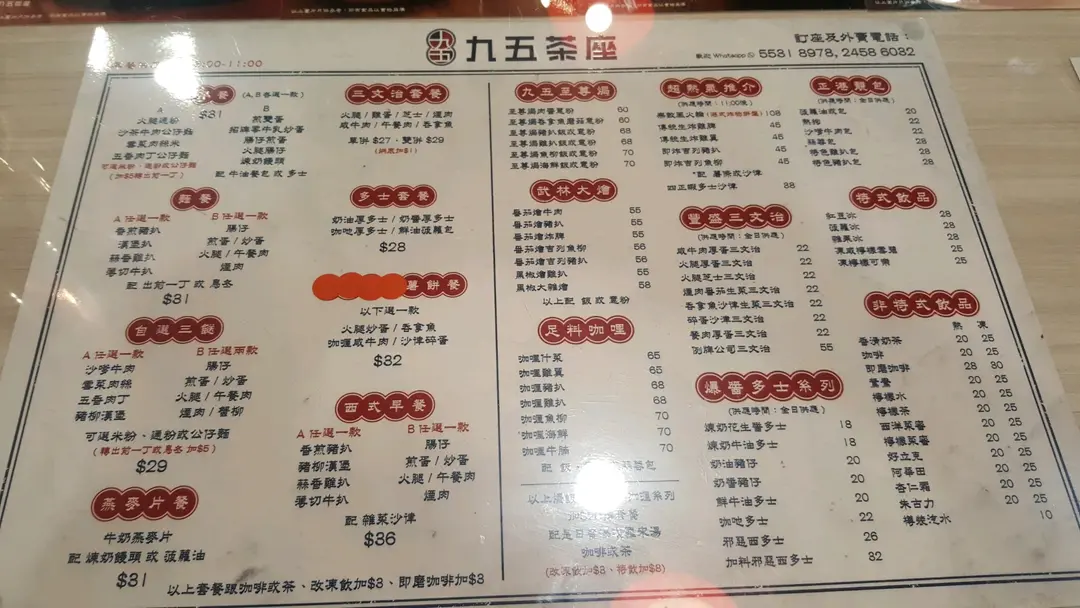 九五茶座
訂座及外賣電話：
歡迎 Whatsapp 5531 8978, 2458 6032
00-11:00
早餐 (A, B各選一款)
$31
A
火腿通粉
沙茶牛肉公仔麵
雪菜肉絲米
五香肉丁公仔麵
可選米粉、通粉或公仔麵
(加$5轉出前一丁)
B
煎雙蛋
招牌零牛乳炒蛋
腸仔煎蛋
火腿腸仔
煉奶饅頭
配 牛油餐包 或 多士
麵餐
A 任選一款
香煎豬扒
漢堡扒
蒜香雞扒
薄切牛扒
B 任選一款
腸仔
煎蛋 / 炒蛋
火腿 / 午餐肉
煙肉
配 出前一丁 或 烏冬
$31
自選三餸
A 任選一款
沙爹牛肉
雪菜肉絲
五香肉丁
豬柳漢堡
B 任選兩款
腸仔
煎蛋 / 炒蛋
火腿 / 午餐肉
煙肉 / 醬柳
可選米粉、通粉或公仔麵
(轉出前一丁或烏冬 加$5)
$29
燕麥片餐
牛奶燕麥片
配 煉奶饅頭 或 菠蘿油
$31
三文治套餐
火腿 / 雞蛋 / 芝士 / 煙肉
咸牛肉 / 午餐肉 / 吞拿魚
單併 $27，雙併 $29
(烘底加$1)
多士套餐
奶油厚多士 / 奶醬厚多士
咖吔厚多士 / 鮮油菠蘿包
$28
薯餅餐
以下選一款
火腿炒蛋 / 吞拿魚
咖喱咸牛肉 / 沙律碎蛋
$32
西式早餐
A 任選一款
香煎豬扒
豬柳漢堡
蒜香雞扒
薄切牛扒
B 任選一款
腸仔
煎蛋 / 炒蛋
火腿 / 午餐肉
煙肉
配 雜菜沙律
$36
以上套餐跟咖啡或茶、改凍飲加$3、即磨咖啡加$3
九五至尊焗
至尊焗肉醬意粉 60
至尊焗吞拿魚蘑菇意粉 60
至尊焗豬扒飯或意粉 68
至尊焗雞扒飯或意粉 68
至尊焗魚柳飯或意粉 70
至尊焗海鮮飯或意粉 70
武林大燴
番茄燴牛肉 55
番茄燴豬扒 55
番茄燴炸雞 55
番茄燴吉列魚柳 56
番茄燴吉列豬扒 56
黑椒燴雞扒 55
黑椒大雜燴 58
以上配 飯 或 意粉
足料咖喱
咖喱什菜 65
咖喱雞翼 65
咖喱豬扒 68
咖喱雞扒 68
咖喱魚柳 70
咖喱海鮮 70
咖喱牛腩 70
咖啡或茶
(改凍飲加$3、特飲加$8)
超熱氣推介
(供應時間：11:00後)
108
傳統生炸雞髀 45
傳統生炸雞翼 45
即炸吉列豬扒 45
即炸吉列魚柳 45
*配 薯條或沙律
四正蝦多士沙律 38
豐盛三文治
(供應時間：全日供應)
咸牛肉厚蛋三文治 22
火腿厚蛋三文治 22
火腿芝士三文治 22
煙肉番茄生菜三文治 22
吞拿魚沙律生菜三文治 22
碎蛋沙律三文治 22
餐肉厚蛋三文治 22
例牌公司三文治 55
爆醬多士系列
(供應時間：全日供應)
煉奶花生醬多士 18
煉奶牛油多士 18
奶油豬仔 20
奶醬豬仔 20
鮮牛油多士 20
咖吔多士 22
邪惡西多士 26
加料邪惡西多士 32
正港麵包
(供應時間：全日供應)
菠蘿油或包 20
熱狗 22
沙嗲牛肉包 28
蒜蓉包 28
特色雞扒包 28
特色豬扒包 28
特式飲品
紅豆冰 28
菠蘿冰 28
雜果冰 28
凍咸檸檬雪碧 25
凍檸檬可樂 25
非特式飲品
熱 凍
香滑奶茶 20 25
咖啡 20 25
即磨咖啡 28 30
鴛鴦 20 25
檸檬水 20 25
檸檬茶 20 25
西洋菜蜜 20 25
檸檬菜蜜 20 25
好立克 20 25
阿華田 20 25
杏仁霜 20 25
朱古力 20 25
樽裝汽水 10